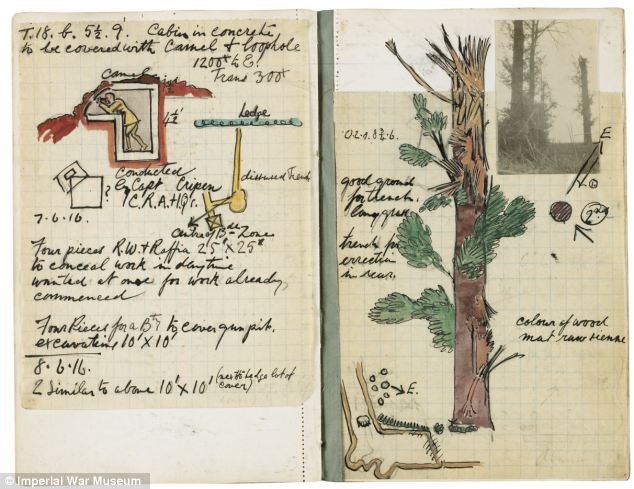 T.18. b. 5½. 9. Cabin in concrete
to be covered with Camel & loophole
1200x to E.
Trans 300x
Camel
4½'
Hedge
Conducted
by Capt
C.R.A. HQrs.
disused Trench
?
Centre of Bde Zone
7.6.16.
Four pieces R.W. & Raffia 25'x25'
to conceal work in daytime
wanted at once for work already
commenced
Four Pieces for a Bty to cover gun pit.
excavations 10'x10'
8.6.16.
2 Similar to above 10'x10' (next hedge lot of
cover)
good ground
for trench.
long grass
trench for
errection
in rear.
E
2nd
colour of wood
mat raw sienne
E.
© Imperial War Museum